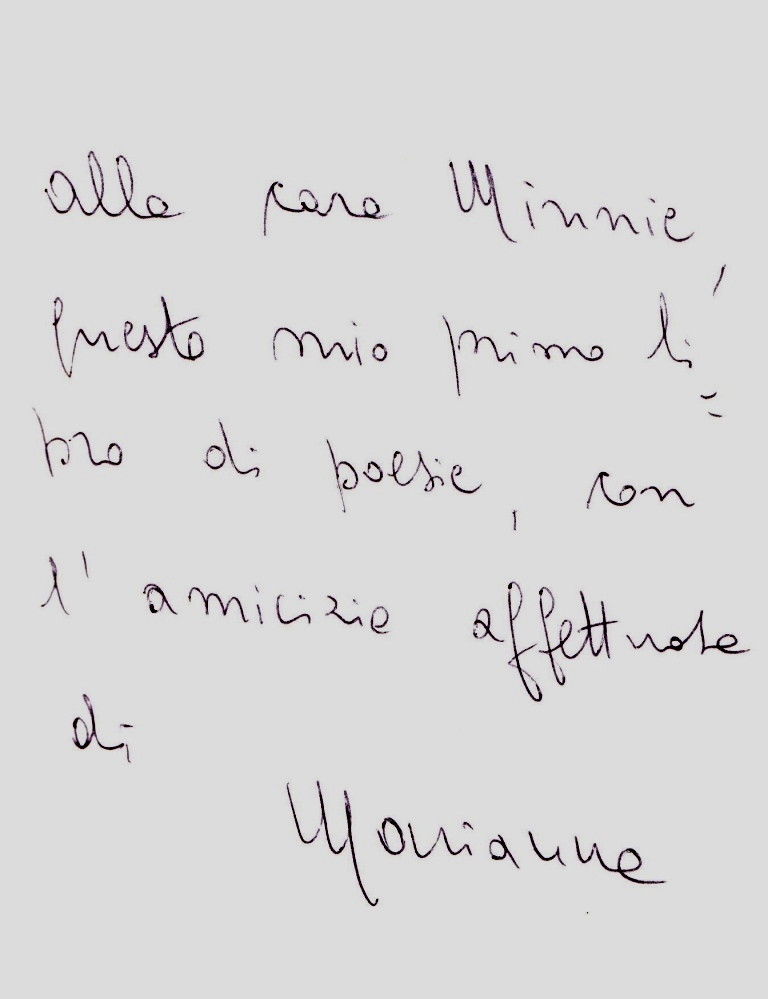 alla cara Minnie,
questo mio primo li=
bro di poesie, con
l'amicizia affettuosa
di
Marianna